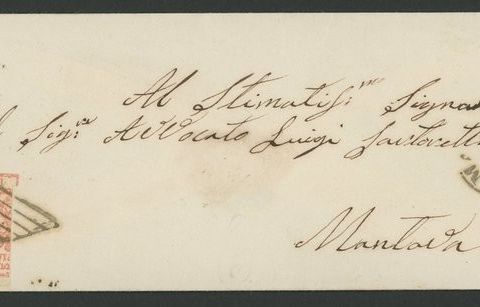 Al Stimatiss: mo Signo
Sig: re Avvocato Luigi Sartorelli
Mantova